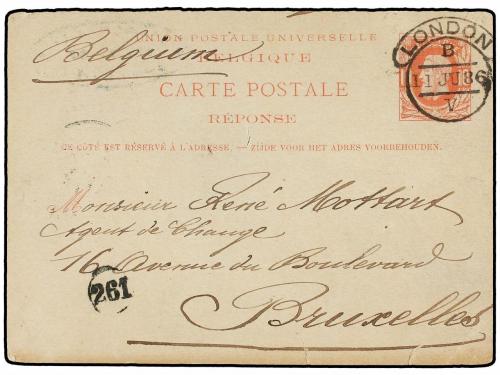 UNION POSTALE UNIVERSELLE
Belgium
BELGIQUE
CARTE POSTALE
RÉPONSE
CE CÔTÉ EST RÉSERVÉ À L'ADRESSE. — ZIJDE VOOR HET ADRES VOORBEHOUDEN.
LONDON
B
11 JU 86
V
Monsieur René Mottart
Agent de Change
16 Avenue du Boulevard
261
Bruxelles